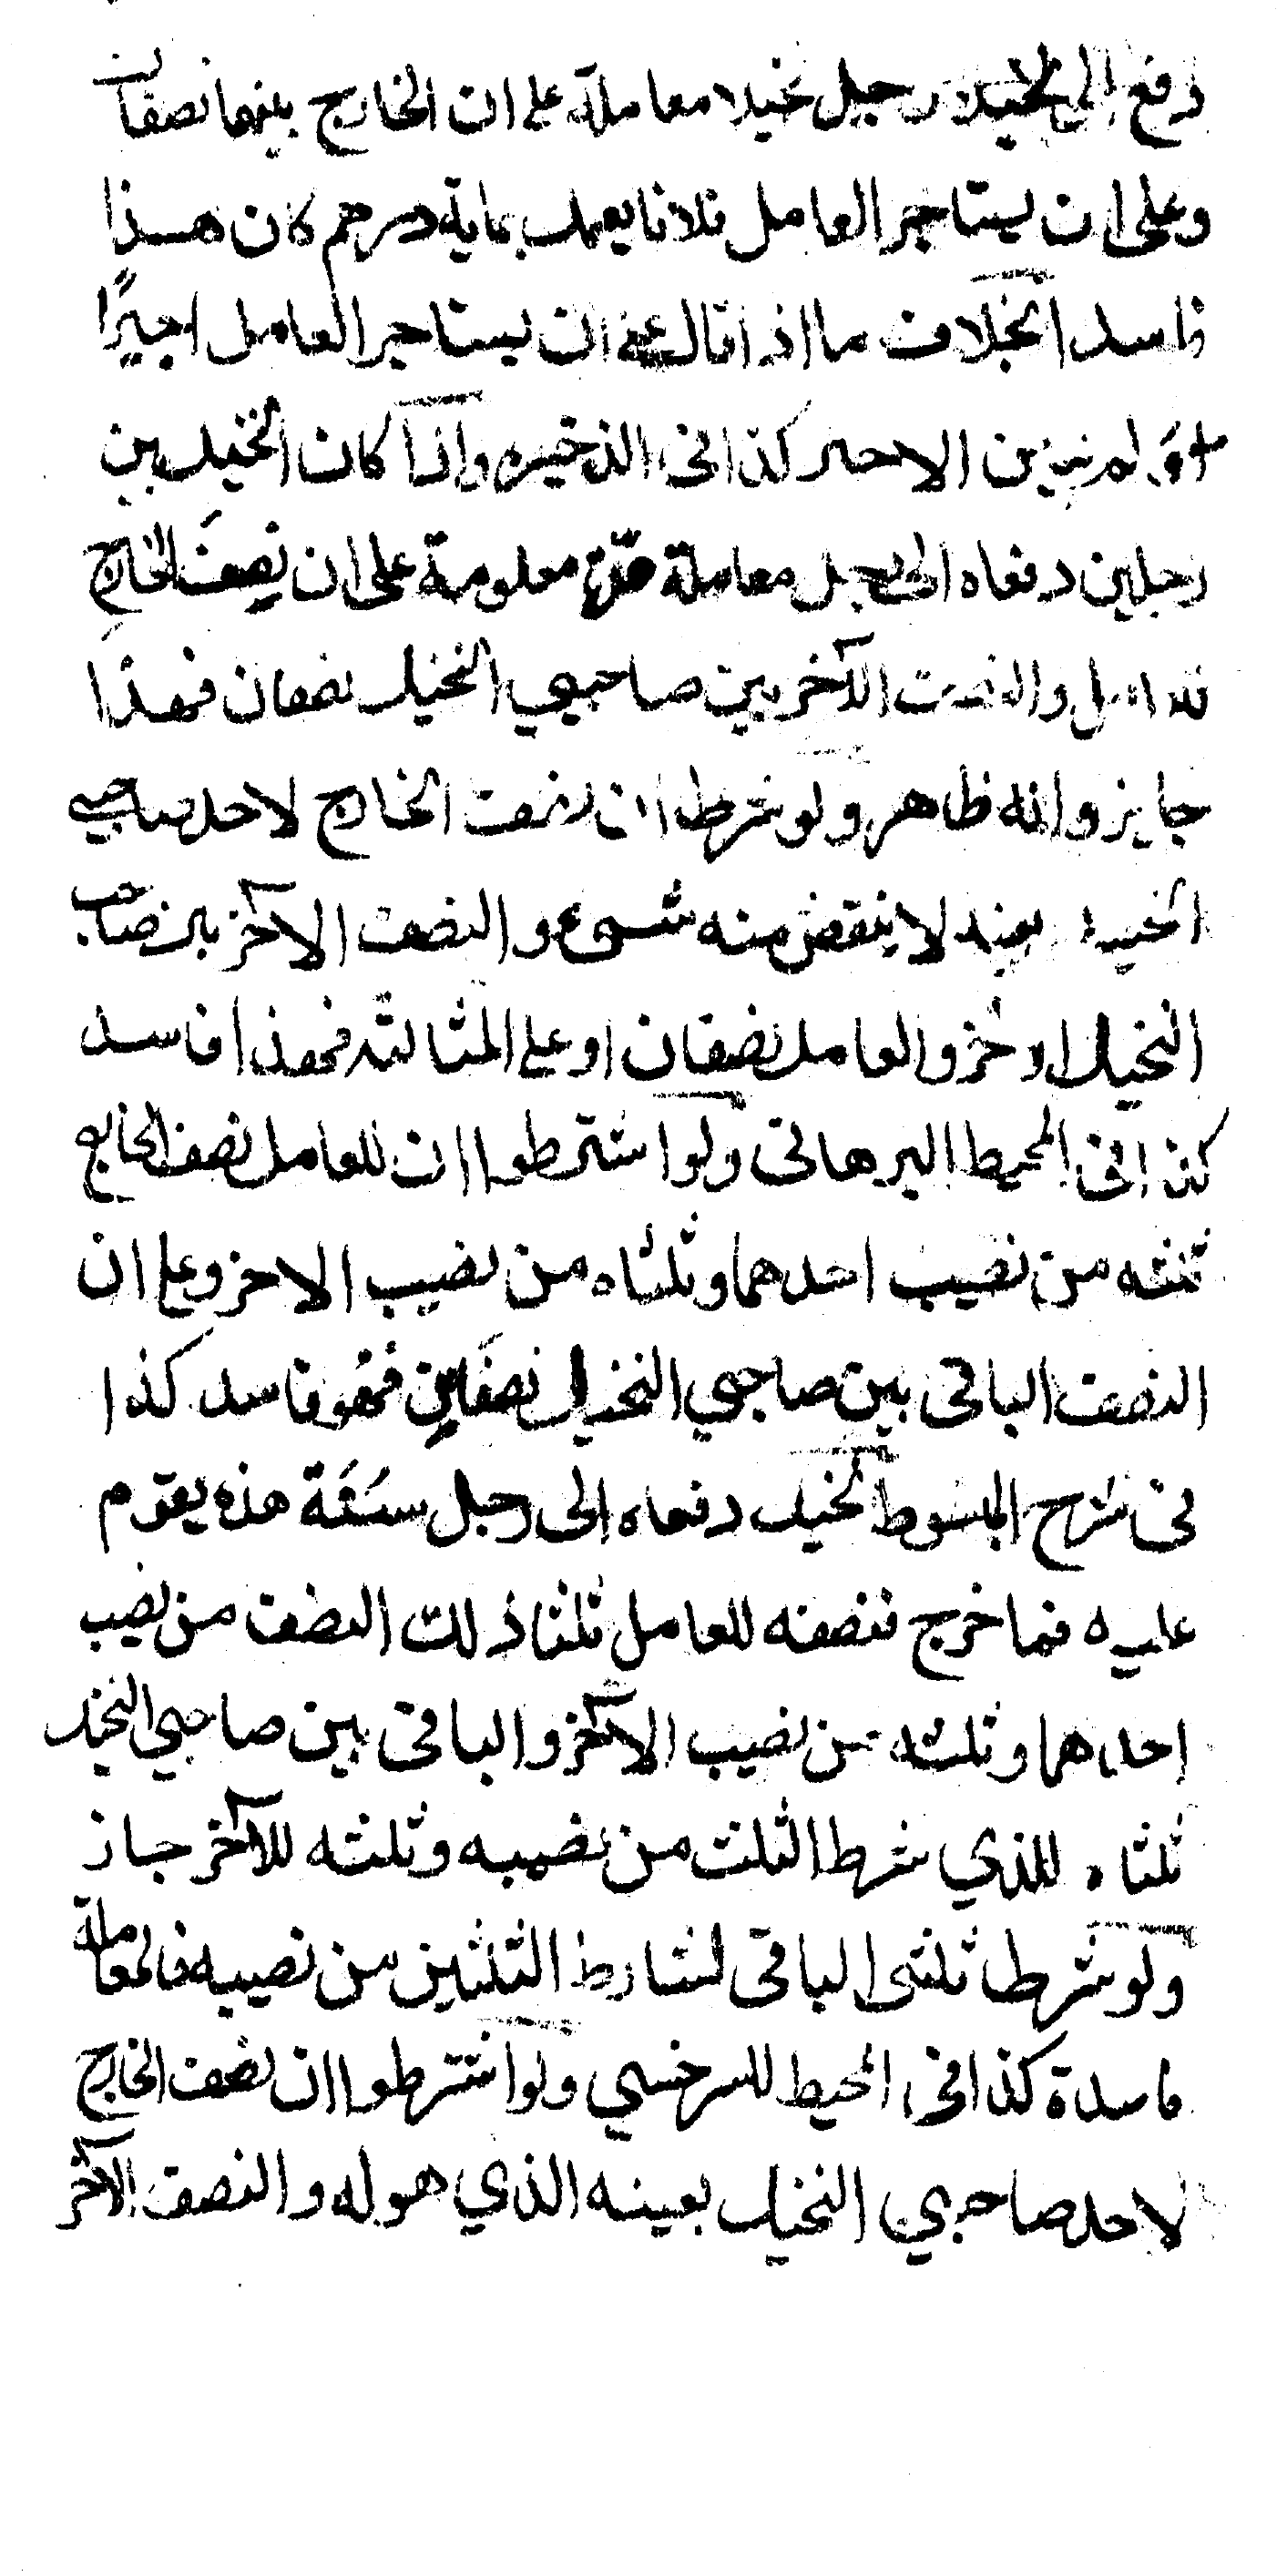 دفع الى رجل نخيلا معاملة على ان الخارج بينهما نصفان
وعلى ان يستاجر العامل فلانا يعمل بماية درهم كان هذا
فاسدا بخلاف ما اذا قال على ان يستاجر العامل اجيرًا
ولم يبين الاجير كذا فى الذخيره واذا كان النخيل بين
رجلين دفعاه الى رجل معاملة معلومة على ان نصف الخارج
للعامل والنصف الآخر بين صاحبي النخيل نصفان فهذا
جايز وانه ظاهر ولو شرطا ان نصف الخارج لاحد صاحبي
النخيل بعينه لا ينقص منه شيء والنصف الآخر بين صاحب
النخيل الاخر والعامل نصفان او على المثالثه فهذا فاسد
كذا فى المحيط البرهانى ولو اشترطوا ان للعامل نصف الخارج
ثلثه من نصيب احدهما وثلثاه من نصيب الاخر وعلى ان
النصف الباقى بين صاحبي النخيل نصفين فهو فاسد كذا
فى شرح المبسوط نخيل دفعاه الى رجل سنَة هذه يقوم
عليه فما خرج فنصفه للعامل ثلثا ذلك النصف من نصيب
احدهما وثلثه من نصيب الآخر والباقى بين صاحبي النخيل
ثلثاه للذي شرط الثلث من نصيبه وثلثه للآخر جاز
ولو شرطا ثلثى الباقى لشارط الثلثين من نصيبه فالمعاملة
فاسدة كذا فى المحيط للسرخسي ولو اشترطوا ان نصف الخارج
لاحد صاحبي النخيل بعينه الذي هو له والنصف الآخر